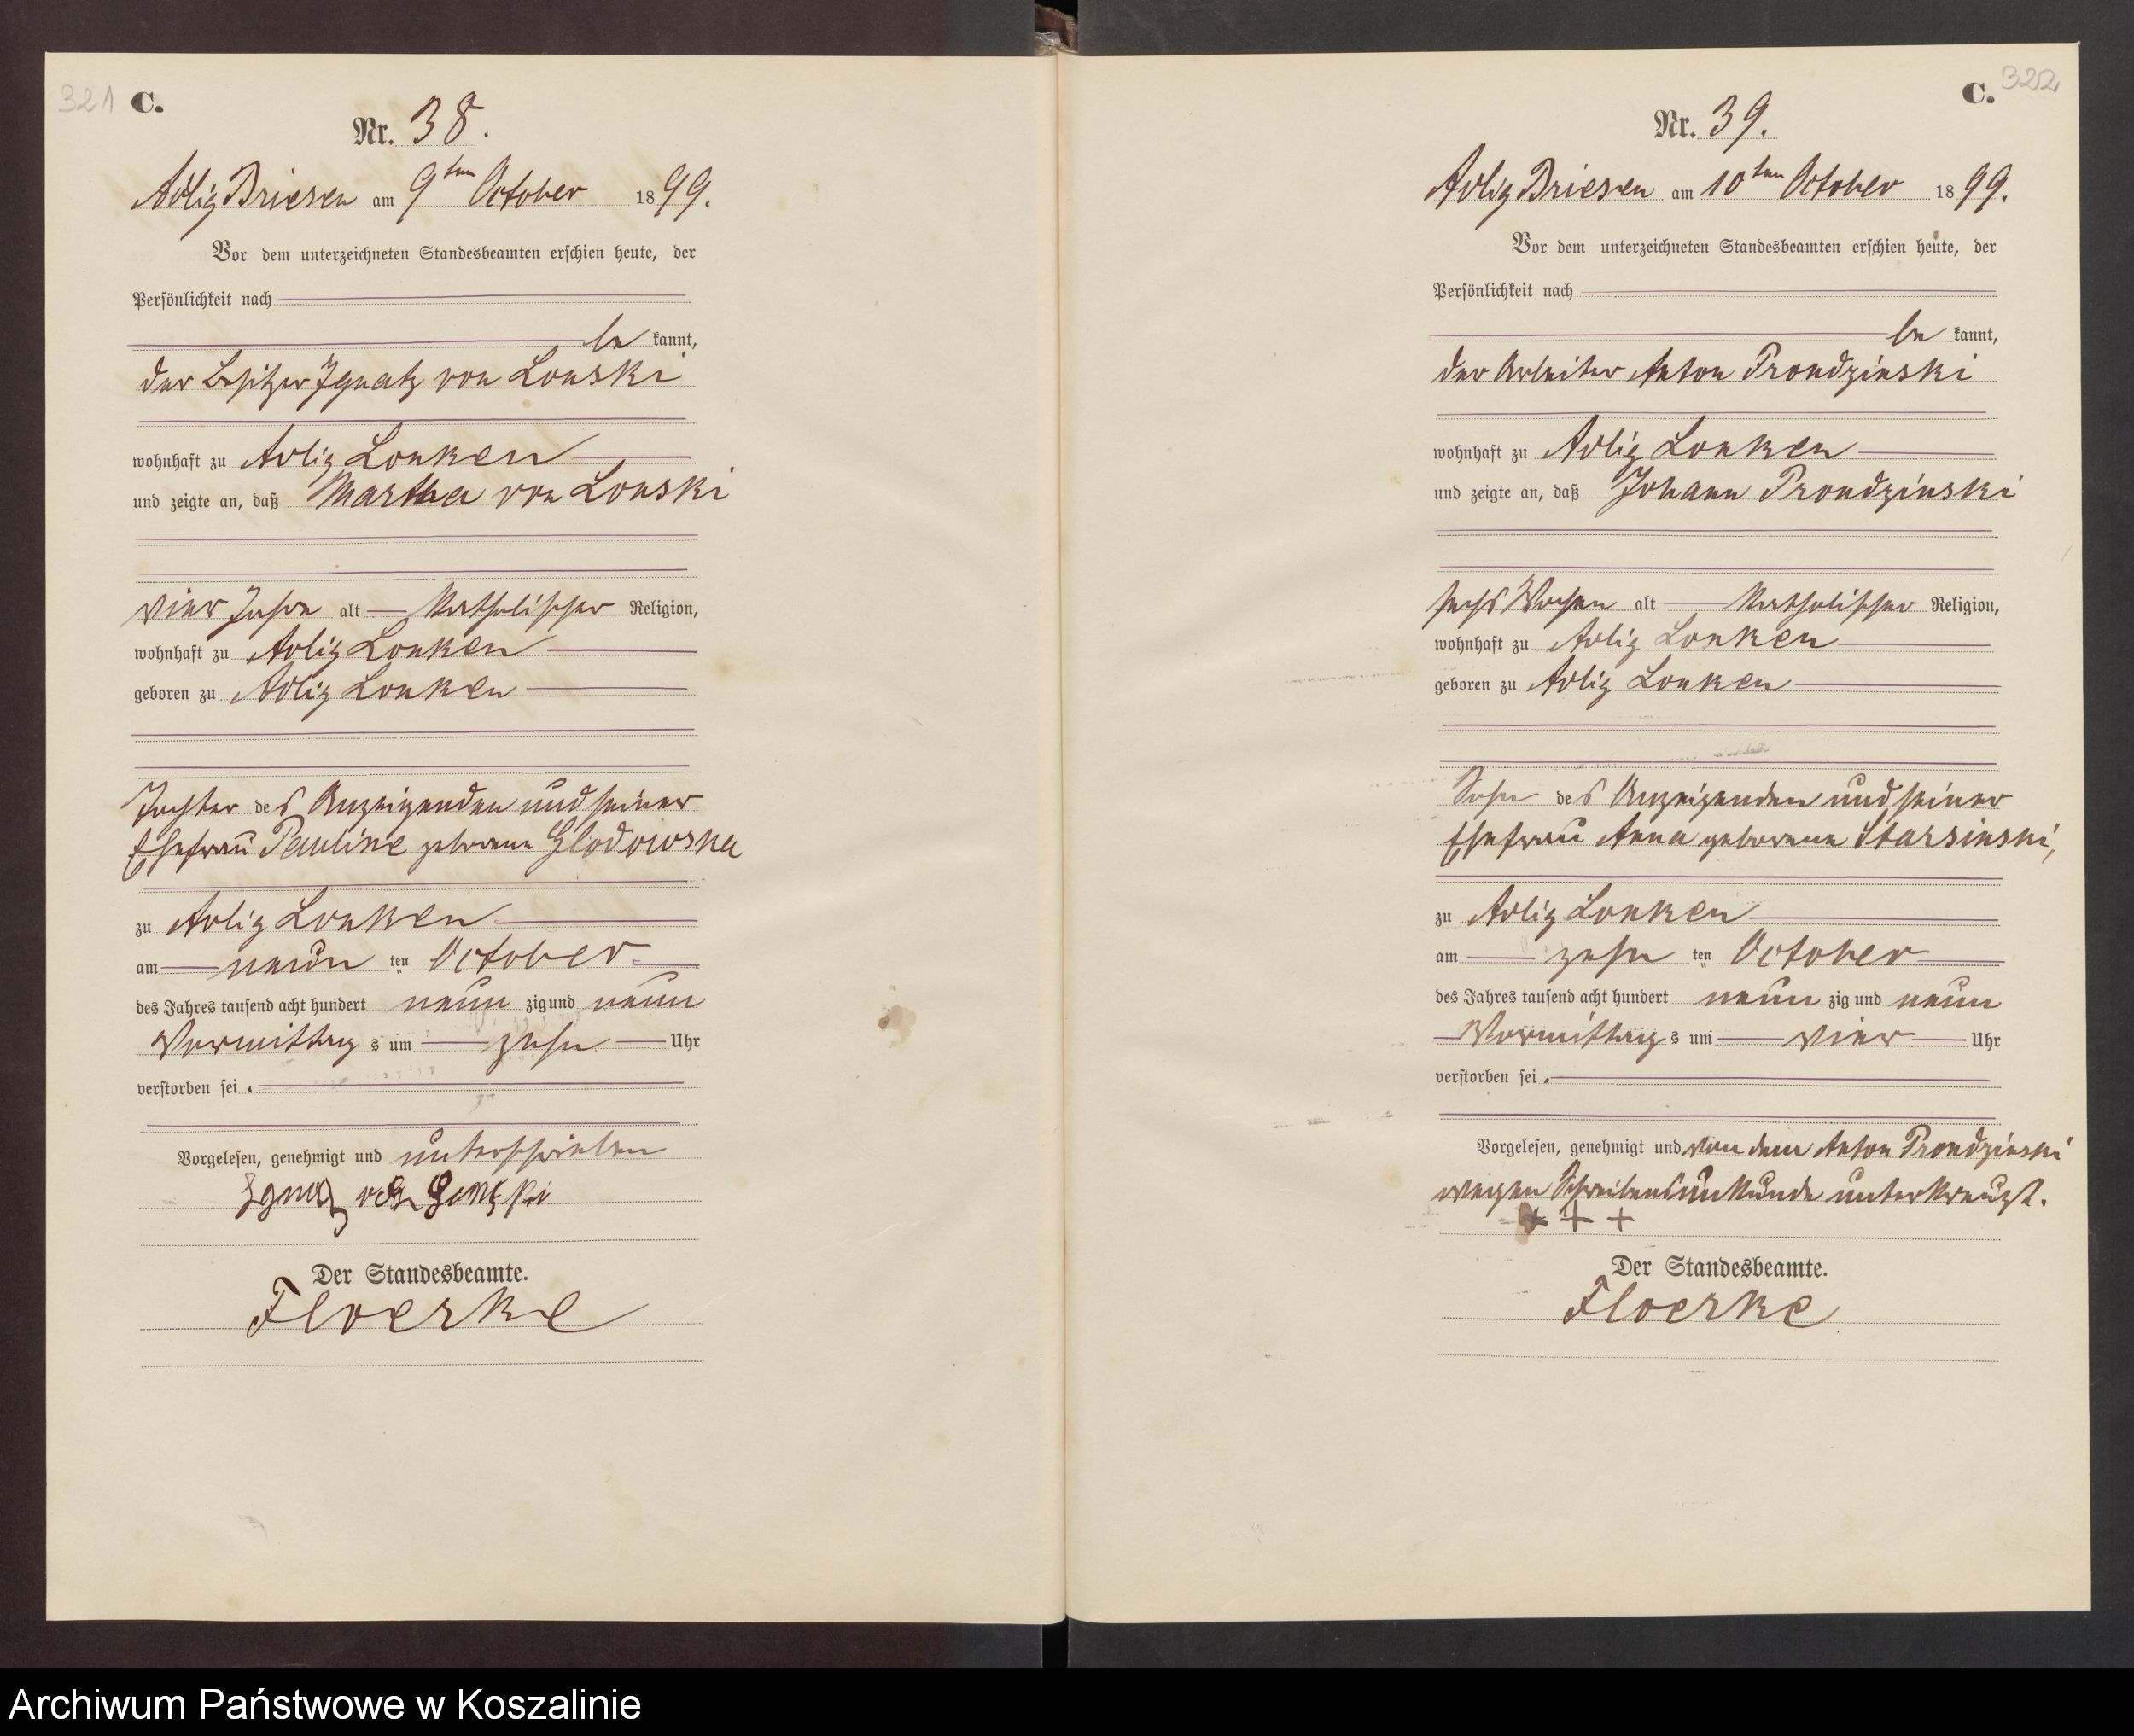 321 C.
Nr. 38.
Adlig Briesen am 9ten October 1899.
Vor dem unterzeichneten Standesbeamten erschien heute, der
Persönlichkeit nach
be kannt,
der Besitzer Ignatz von Lonski
wohnhaft zu Adlig Lonken
und zeigte an, daß Martha von Lonski
vier Jahre alt katholischer Religion,
wohnhaft zu Adlig Lonken
geboren zu Adlig Lonken
Tochter des Anzeigenden und seiner
Ehefrau Pauline geborene Glodowska
zu Adlig Lonken
am neun ten October
des Jahres tausend acht hundert neun zig und neun
Vormittag s um zehn Uhr
verstorben sei.
Vorgelesen, genehmigt und unterschrieben
Ignatz von Lonski
Der Standesbeamte.
Floerke
C. 322
Nr. 39.
Adlig Briesen am 10ten October 1899.
Vor dem unterzeichneten Standesbeamten erschien heute, der
Persönlichkeit nach
be kannt,
der Arbeiter Anton Prondzinski
wohnhaft zu Adlig Lonken
und zeigte an, daß Johann Prondzinski
sechs Wochen alt katholischer Religion,
wohnhaft zu Adlig Lonken
geboren zu Adlig Lonken
Sohn des Anzeigenden und seiner
Ehefrau Anna geborene Starsinski,
zu Adlig Lonken
am zehn ten October
des Jahres tausend acht hundert neun zig und neun
Vormittag s um vier Uhr
verstorben sei.
Vorgelesen, genehmigt und von dem Anton Prondzinski
wegen Schreibensunkunde unterkreuzt.
+ + +
Der Standesbeamte.
Floerke
Archiwum Państwowe w Koszalinie